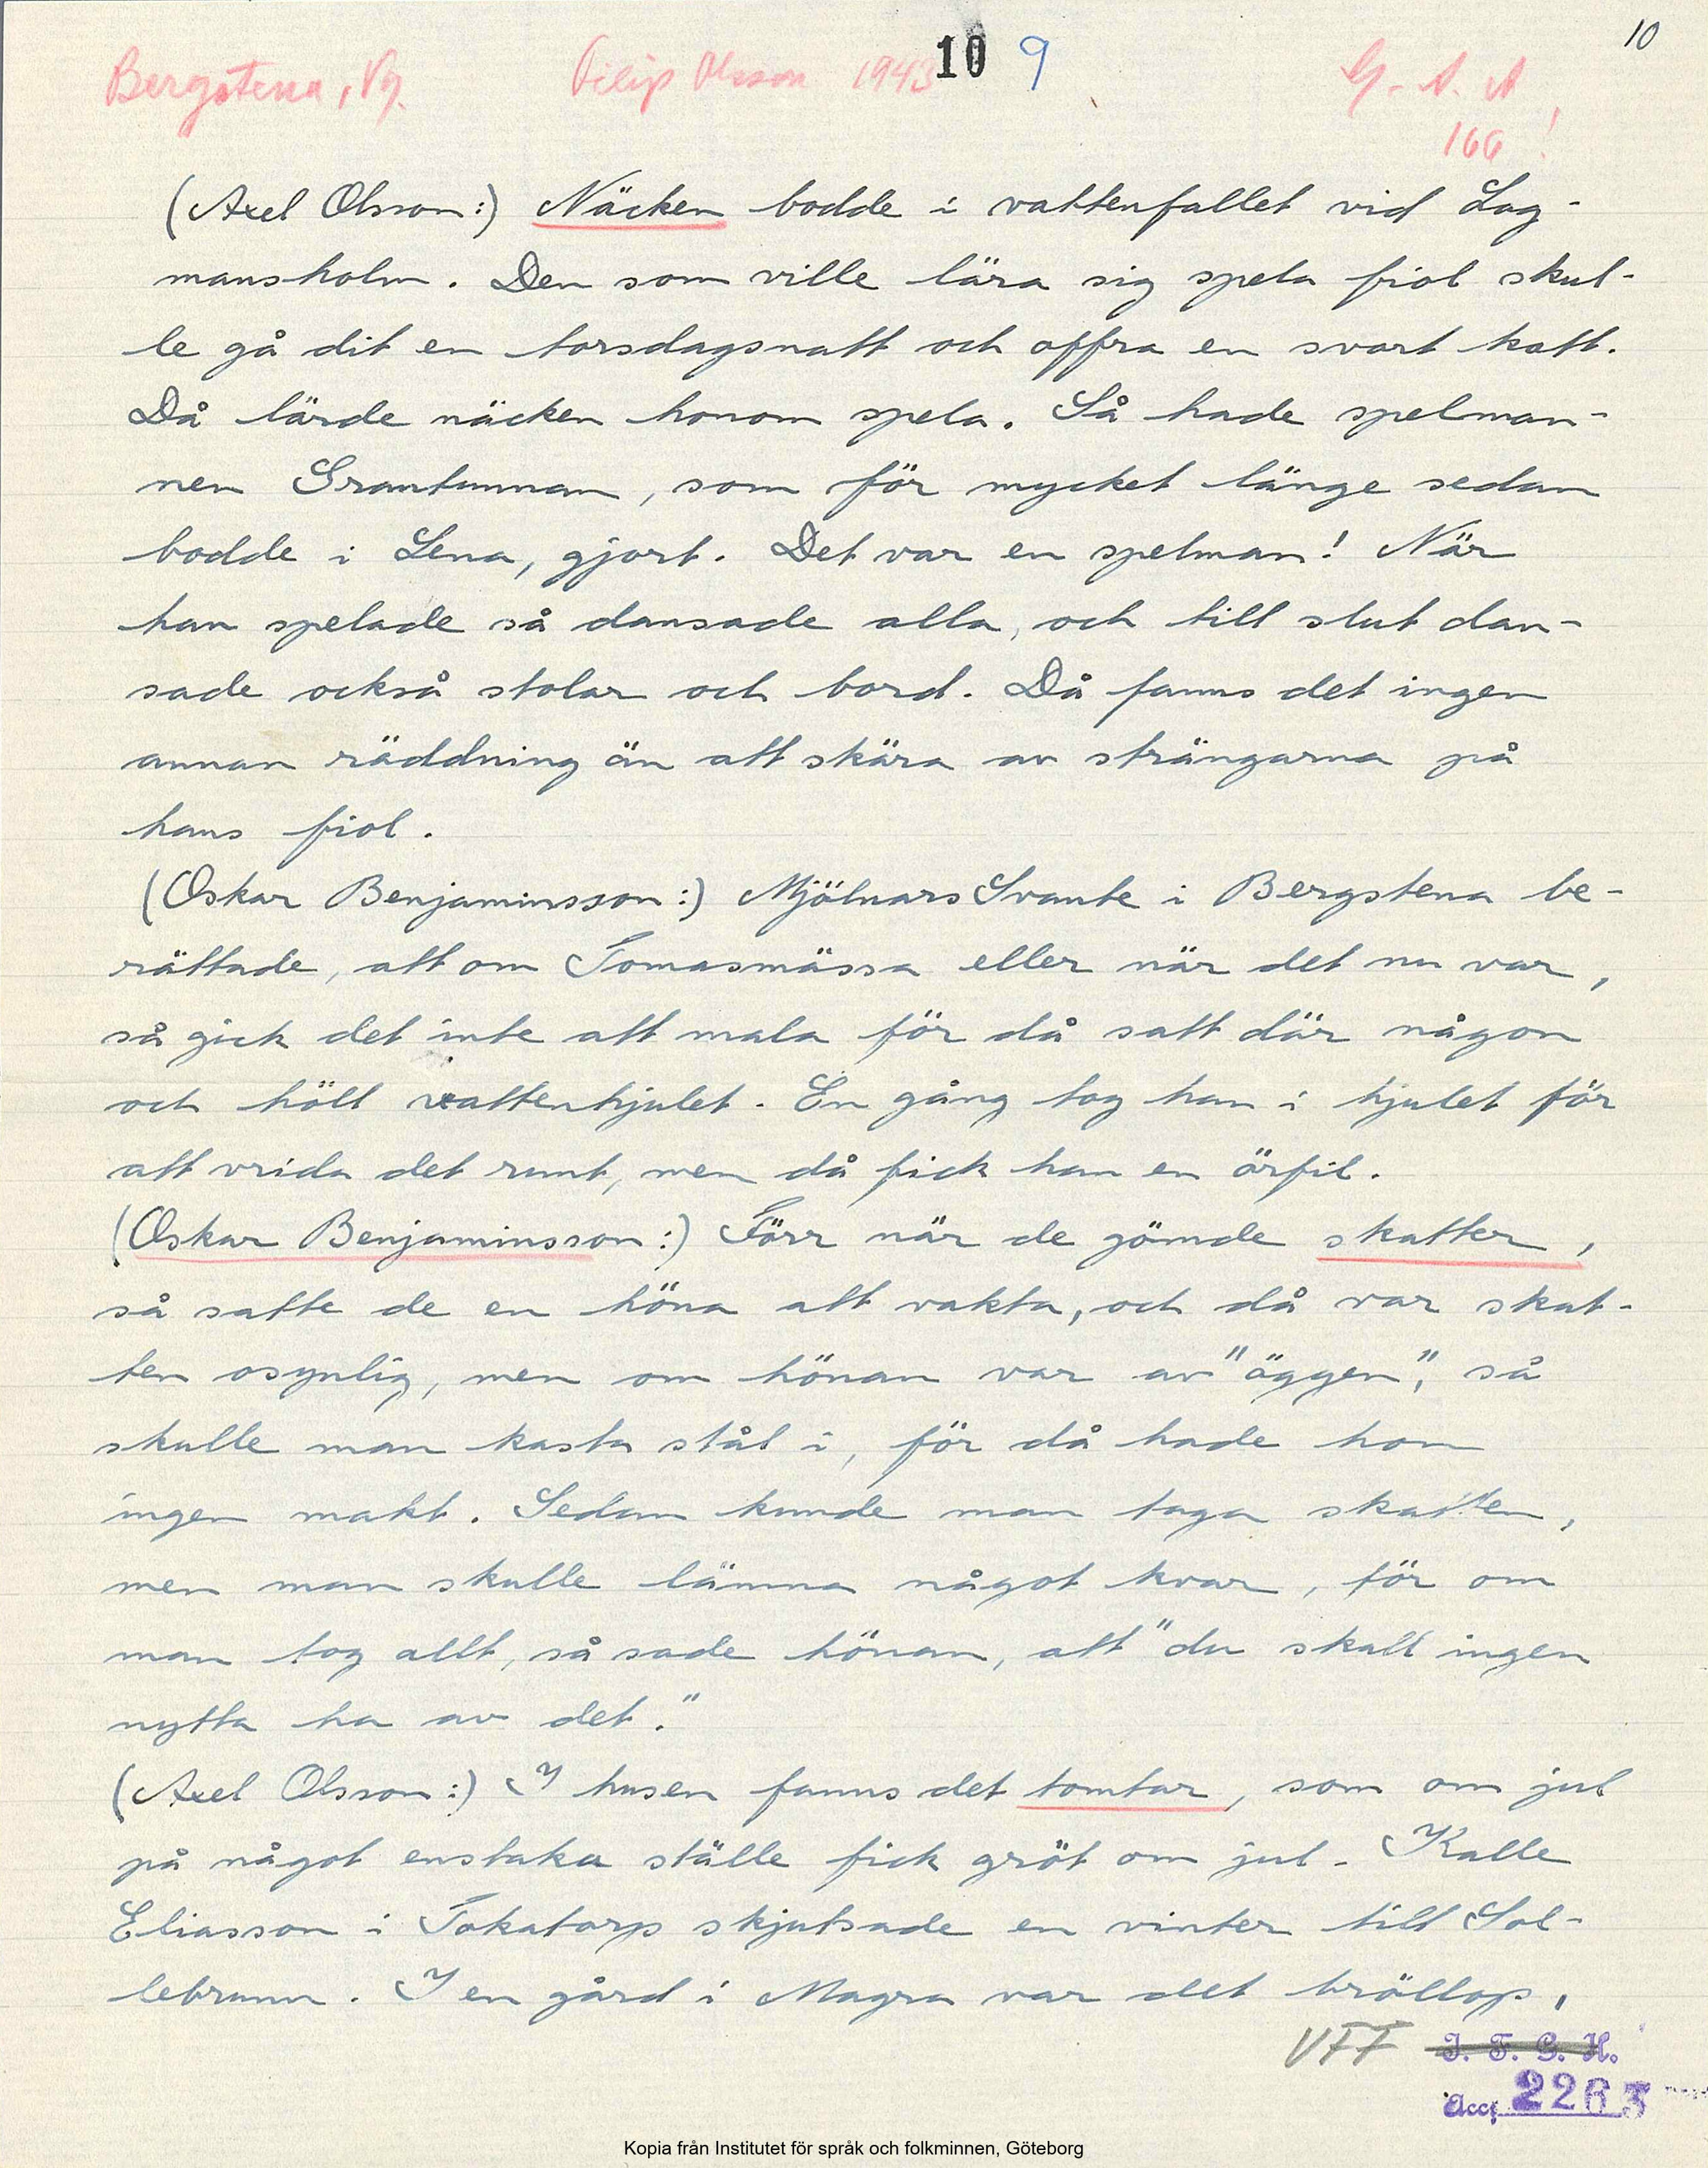 10
10 9
Bergstena, Vg. Filip Olsson 1943 G. A. A
166!
(Axel Olsson:) Näcken bodde i vattenfallet vid Lag-
mansholm. Den som ville lära sig spela fiol skul-
le gå dit en torsdagsnatt och offra en svart katt.
Då lärde näcken honom spela. Så hade spelman-
nen Grantunnan, som för mycket länge sedan
bodde i Lena, gjort. Det var en spelman! När
han spelade så dansade alla, och till slut dan-
sade också stolar och bord. Då fanns det ingen
annan räddning än att skära av strängarna på
hans fiol.
(Oskar Benjaminsson:) Mjölnars Svante i Bergstena be-
rättade, att om Tomasmässa eller när det nu var,
så gick det inte att mala för då satt där någon
och höll vattenhjulet. En gång tog han i hjulet för
att vrida det runt, men då fick han en örfil.
(Oskar Benjaminsson:) Förr när de gömde skatter,
så satte de en höna att vakta, och då var skat-
ten osynlig, men om hönan var av "äggen", så
skulle man kasta stål i, för då hade hon
ingen makt. Sedan kunde man taga skatten,
men man skulle lämna något kvar, för om
man tog allt, så sade hönan, att "du skall ingen
nytta ha av det."
(Axel Olsson:) I husen fanns det tomtar, som om jul
på något enstaka ställe fick gröt om jul. Kalle
Eliasson i Tokatorp skjutsade en vinter till Sol-
lebrunn. I en gård i Magra var det bröllop,
VFF I. F. G. H.
Acc. 2263
Kopia från Institutet för språk och folkminnen, Göteborg